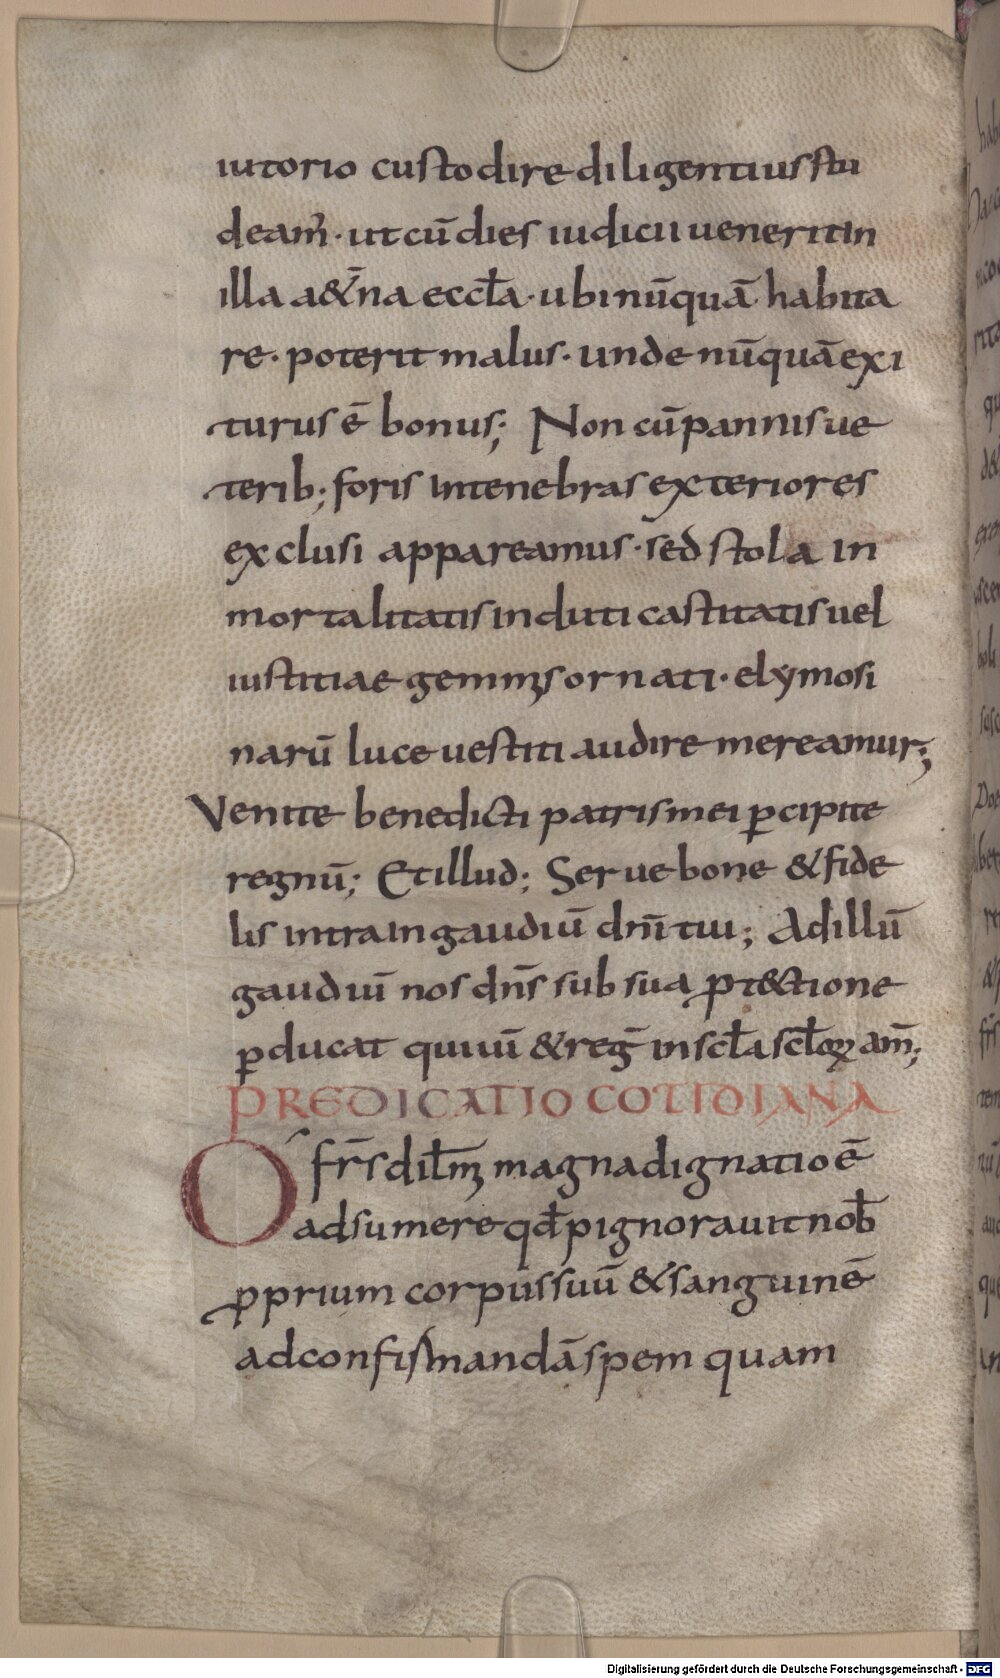 iutorio custodire diligentius stu
deam̅· ut cu᷄ dies iudicii uenerit in
illa a&̅na eccl̅a· ubi nu᷄qua᷄ habita
re· poterit malus· unde nu᷄qua᷄ exi
turus e᷄ bonus; Non cu᷄ pannis ue
terib; foris in tenebras exteriores
exclusi appareamus· sed stola in
mortalitatis induti castitatis uel
iustitiae gemmis ornati· elymosi
naru᷄ luce uestiti audire mereamur;
Venite benedicti patris mei ꝑcipite
regnu᷄; Et illud; Serue bone & fide
lis intra in gaudiu᷄ dn̅i tui; Ad illu᷄
gaudiu᷄ nos dn̅s sub sua ꝓt&ctione
ꝑducat qui uiu᷄ & reg̅ in scl̅a scl̅oꝝ am̅;
PREDICATIO COTIDIANA
O fr̅s dil̅mi magna dignatio e᷄
adsumere qd̅ pignorauit nob̅
ꝓprium corpus suu᷄ & sanguine᷄
ad confirmanda᷄ spem quam
Digitalisierung gefördert durch die Deutsche Forschungsgemeinschaft - DFG